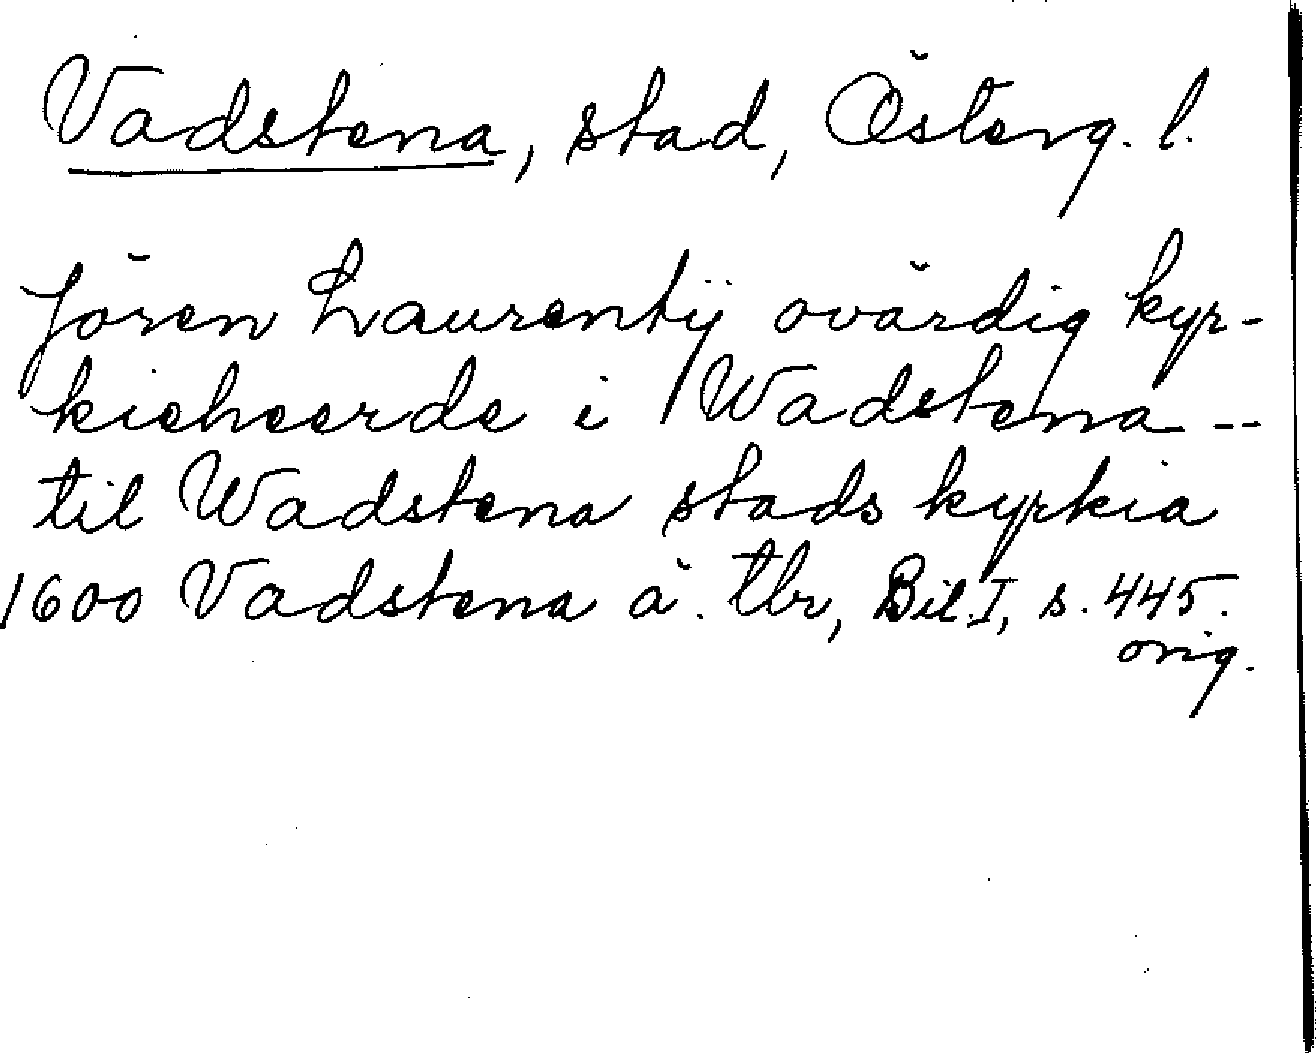 Vadstena, stad, Österg. l.
Jören Laurentij ovärdig kyr-
kieheerde i Wadstena --
til Wadstena stads kyrkia
1600 Vadstena ä. tbr, Bil. I, s. 445.
orig.